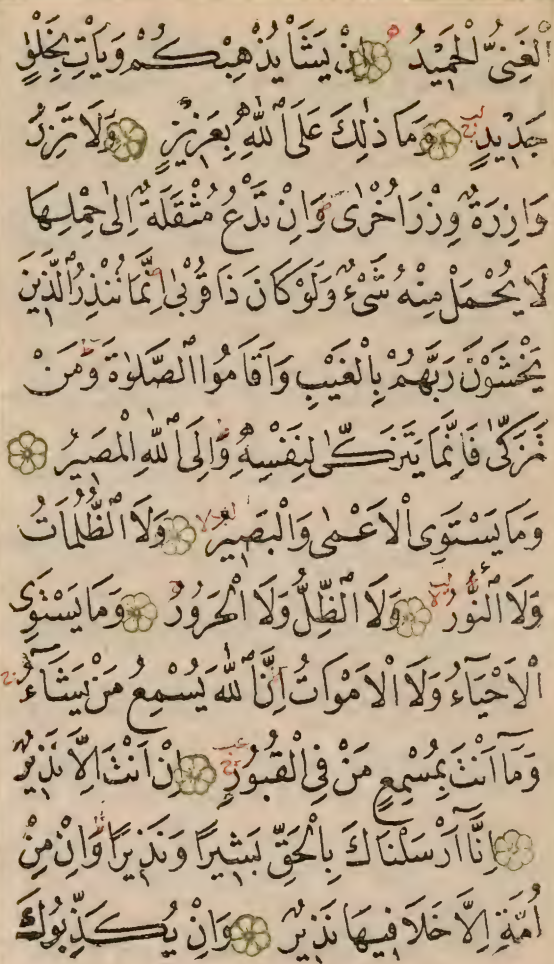 الْغَنِىُّ الْحَمِيْدُ ۝ اِنْ يَشَأْ يُذْهِبْكُمْ وَيَاْتِ بِخَلْقٍ
جَدِيْدٍ ۝ وَمَا ذٰلِكَ عَلَى اللّٰهِ بِعَزِيْزٍ ۝ وَلَا تَزِرُ
وَازِرَةٌ وِزْرَ اُخْرٰى وَاِنْ تَدْعُ مُثْقَلَةٌ اِلٰى حِمْلِهَا
لَا يُحْمَلْ مِنْهُ شَىْءٌ وَلَوْ كَانَ ذَا قُرْبٰى اِنَّمَا تُنْذِرُ الَّذِيْنَ
يَخْشَوْنَ رَبَّهُمْ بِالْغَيْبِ وَاَقَامُوا الصَّلٰوةَ وَمَنْ
تَزَكّٰى فَاِنَّمَا يَتَزَكّٰى لِنَفْسِهٖ وَاِلَى اللّٰهِ الْمَصِيْرُ ۝
وَمَا يَسْتَوِى الْاَعْمٰى وَالْبَصِيْرُ ۝ وَلَا الظُّلُمَاتُ
وَلَا النُّوْرُ ۝ وَلَا الظِّلُّ وَلَا الْحَرُوْرُ ۝ وَمَا يَسْتَوِى
الْاَحْيَآءُ وَلَا الْاَمْوَاتُ اِنَّ اللّٰهَ يُسْمِعُ مَنْ يَشَآءُ
وَمَآ اَنْتَ بِمُسْمِعٍ مَنْ فِى الْقُبُوْرِ ۝ اِنْ اَنْتَ اِلَّا نَذِيْرٌ
۝ اِنَّآ اَرْسَلْنَاكَ بِالْحَقِّ بَشِيْرًا وَنَذِيْرًا وَاِنْ مِنْ
اُمَّةٍ اِلَّا خَلَا فِيْهَا نَذِيْرٌ ۝ وَاِنْ يُكَذِّبُوْكَ